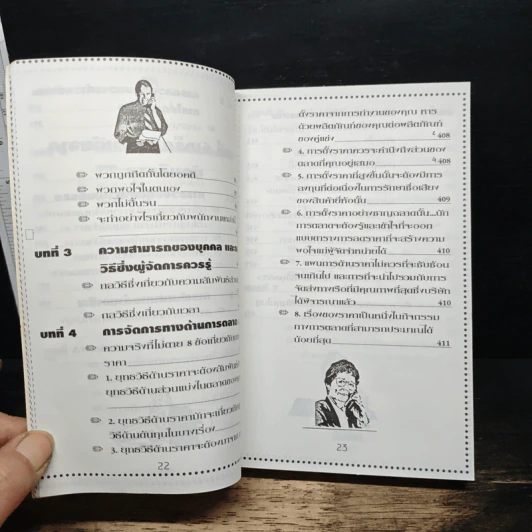 พวกถูกกีดกันโดยอคติ
พวกพอใจในตนเอง
พวกไม่ดิ้นรน
จะทำอย่างไรเกี่ยวกับพนักงาน
บทที่ 3 ความสามารถของบุคคล และ
วิธีซึ่งผู้จัดการควรรู้
กลวิธีซึ่งเกี่ยวกับความสัมพันธ์
กลวิธีซึ่งเกี่ยวกับเวลา
บทที่ 4 การจัดการทางด้านการตลาด
ความจริงที่ไม่ตาย 8 ข้อเกี่ยวกับ
ราคา
1. ยุทธวิธีด้านราคาจะต้องสัมพันธ์
ยุทธวิธีด้านส่วนแบ่งในตลาดของ
2. ยุทธวิธีด้านราคามักจะเกี่ยว
วิธีด้านต้นทุนในบางเรื่อง
3. ยุทธวิธีด้านราคาจะต้อง
22
ตั้งราคาจากการทำงานของคุณ การ
ด้วยผลิตภัณฑ์ของคุณต่อผลิตภัณฑ์
ของคู่แข่ง 408
4. การตั้งราคาควรจะคำนึงถึงส่วนของ
ตลาดที่คุณอยู่เสมอ 408
5. การตั้งราคาที่สูงขึ้นนั้นจะต้องมีการ
ลงทุนที่ต่อเนื่องในการรักษาชื่อเสียง
ของสินค้ายี่ห้อนั้น 409
6. การตั้งราคาอย่างถูกฉลาดนั้น...นัก
การตลาดจะต้องรู้และเข้าใจที่จะออก
แบบตารางการลดราคาที่จะสร้างความ
พอใจแก่ผู้จัดจำหน่ายได้ 410
7. แผนการด้านราคาไม่ควรที่จะซับซ้อน
จนเกินไป และการที่จะนำไปรวมกับการ
จัดส่งทางเรือที่มีคุณภาพที่สุดซึ่งบริษัท
ได้พิจารณาแล้ว 410
8. เรื่องของราคาเป็นหนึ่งในกิจกรรม
ทางการตลาดที่สามารถประมาณได้
น้อยที่สุด 411
23